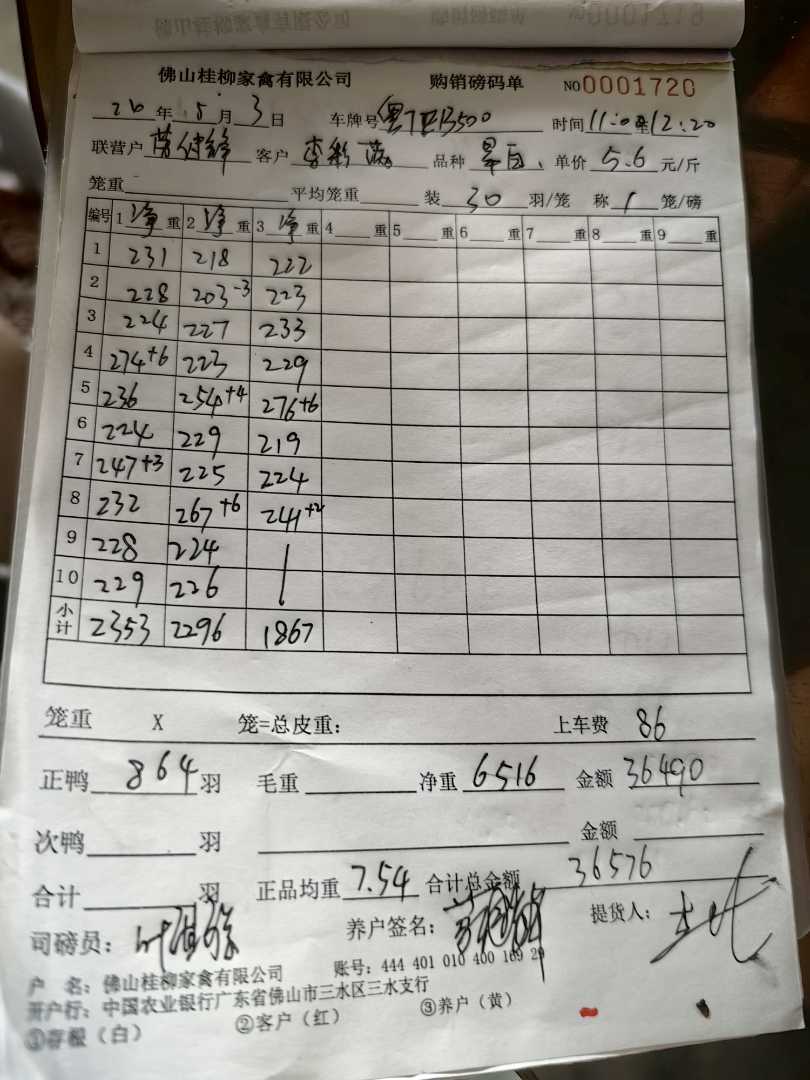 佛山桂柳家禽有限公司 购销磅码单 NO 0001720
26年5月3日 车牌号 时间11:00至12:20
联营户 客户 李彩 品种 单价 5.6 元/斤
笼重 平均笼重 装 30 羽/笼 称 1 笼/磅
编号 1 净 重 2 净 重 3 净 重 4 重 5 重 6 重 7 重 8 重 9 重
1 231 218 222
2 228 203-3 223
3 224 227 233
4 274+6 223 229
5 236 254+4 276+6
6 224 229 219
7 247+3 225 224
8 232 267+6 241+2
9 228 224
10 229 226
小计 2353 2296 1867
笼重 X 笼=总皮重: 上车费 86
正鸭 864 羽 毛重 净重 6516 金额 36490
次鸭 羽 金额
合计 羽 正品均重 7.54 合计总金额 36576
司磅员: 养户签名: 提货人:
户 名:佛山桂柳家禽有限公司 账号:444 401 010 400 169 29
开户行:中国农业银行广东省佛山市三水区三水支行
①存根(白) ②客户(红) ③养户(黄)